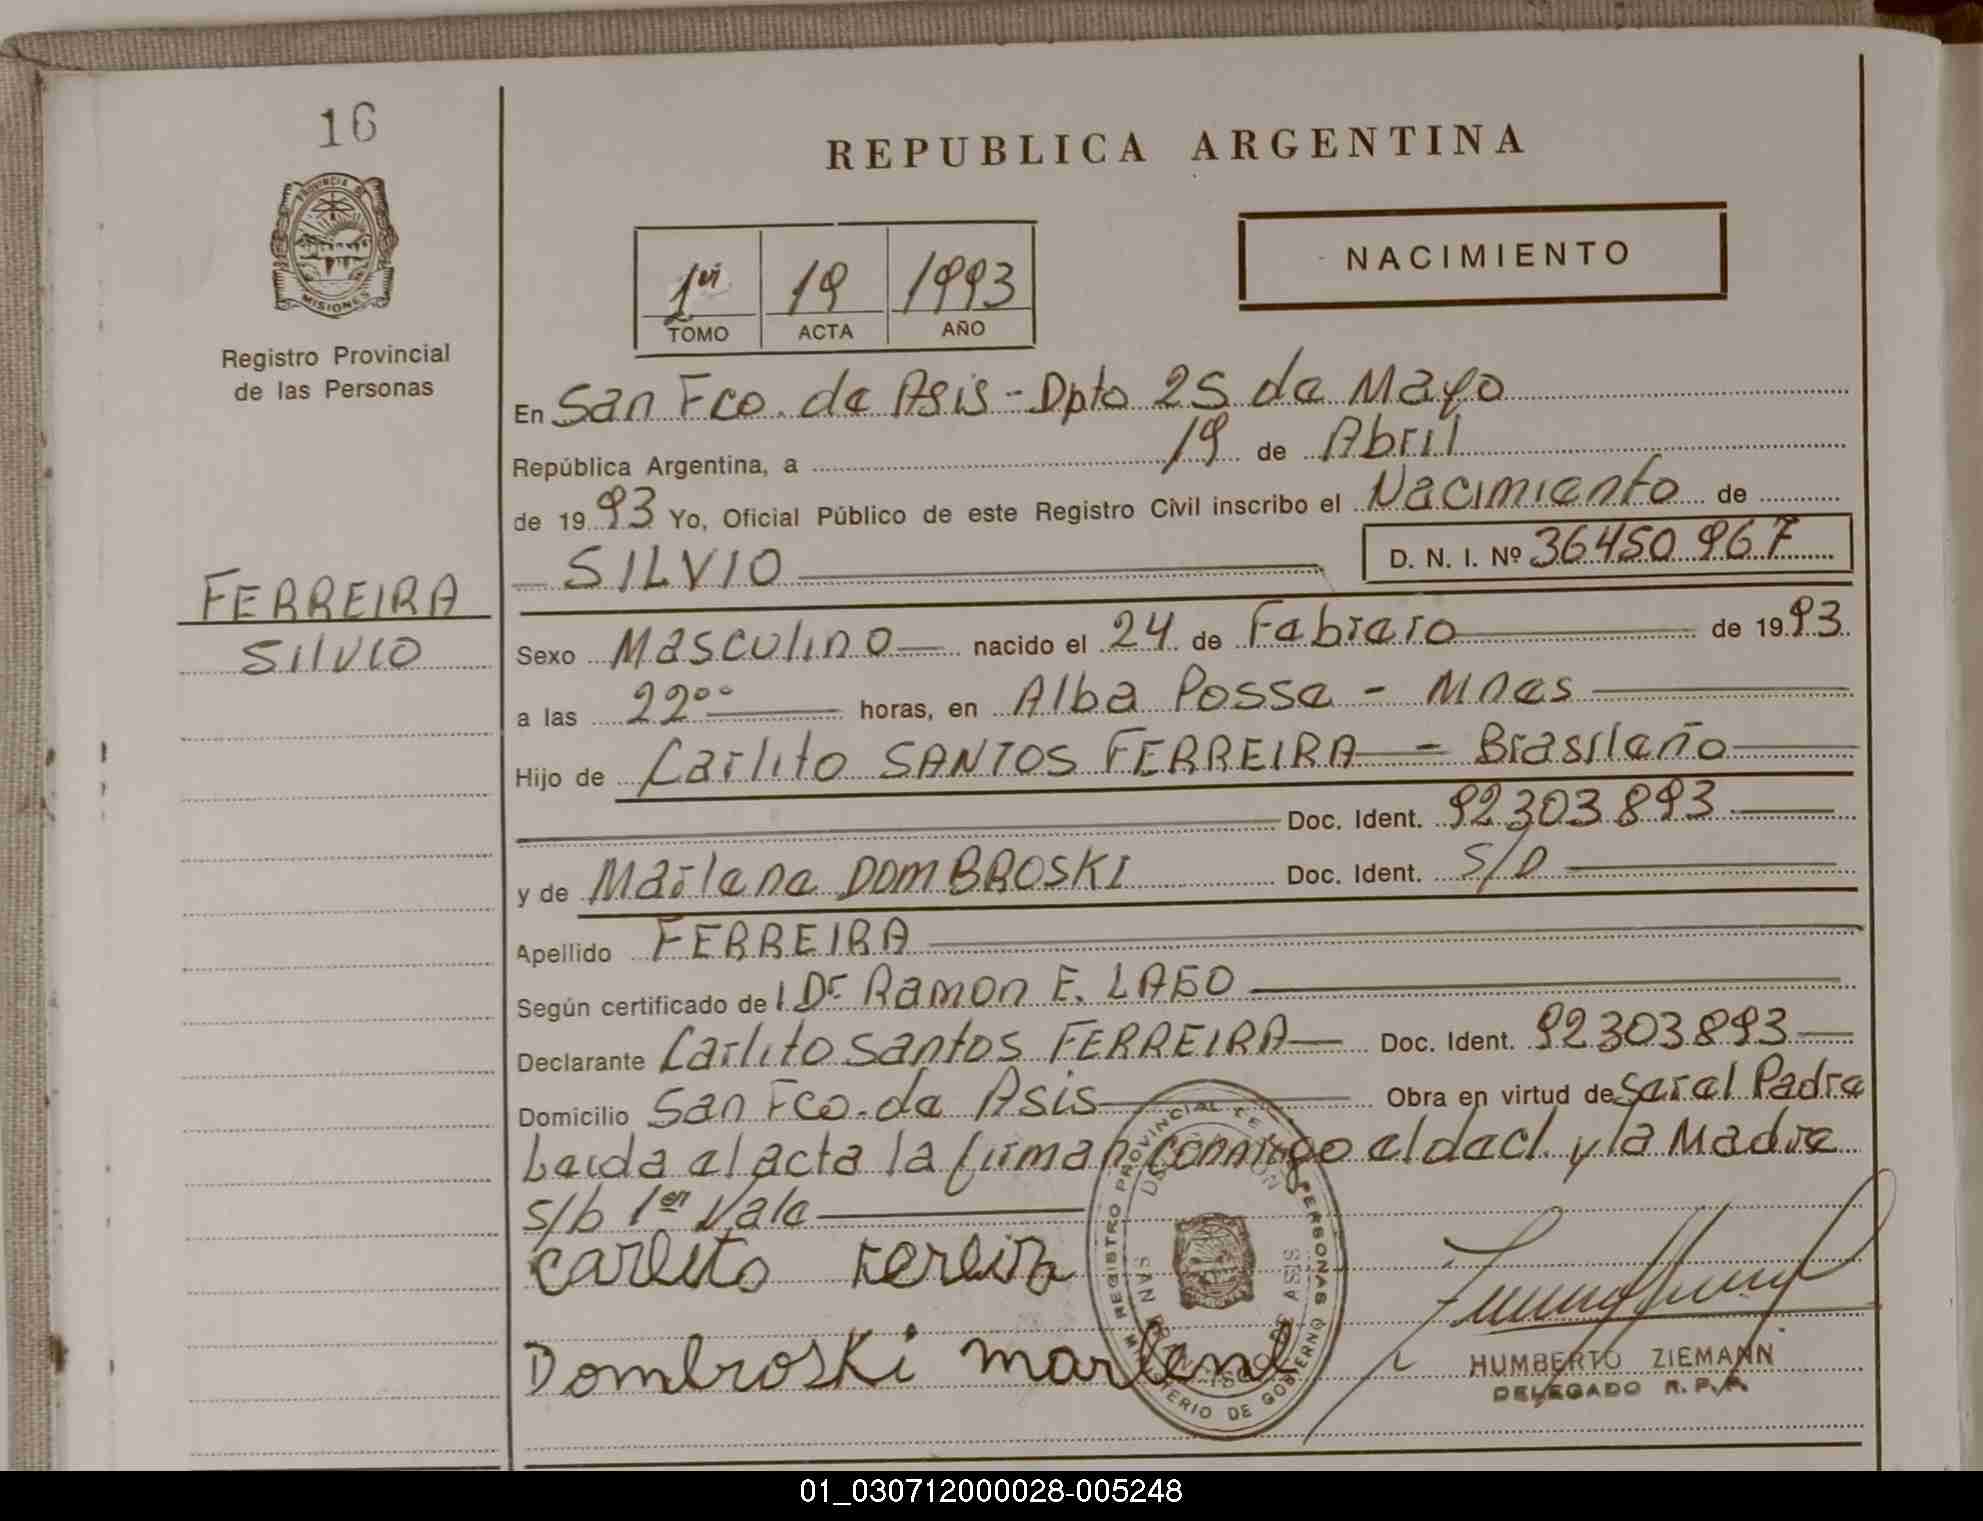 16
PROVINCIA DE
MISIONES
Registro Provincial
de las Personas
FERREIRA
SILVIO
REPUBLICA ARGENTINA
NACIMIENTO
1er 19 1993
TOMO ACTA AÑO
En San Fco. de Asis - Dpto 25 de Mayo
República Argentina, a 19 de Abril
de 1993 Yo, Oficial Público de este Registro Civil inscribo el Nacimiento de
SILVIO D. N. I. Nº 36450967
Sexo Masculino nacido el 24 de Febrero de 1993
a las 22⁰⁰ horas, en Alba Posse - Mnes
Hijo de Carlito SANTOS FERREIRA - Brasileño
Doc. Ident. 92303893
y de Marlene DOMBROSKI Doc. Ident. S/D
Apellido FERREIRA
Según certificado del Dr Ramon E. LAGO
Declarante Carlito Santos FERREIRA Doc. Ident. 92303893
Domicilio San Fco. de Asis Obra en virtud de Ser el Padre
Leida el acta la firman conmigo el decl. y la Madre
s/b 1er Vale
Carlito Fereira
Dombroski marlene
REGISTRO PROVINCIAL DE LAS PERSONAS
MINISTERIO DE GOBERNO
DELEGACION
SAN FRANCISCO DE ASIS
HUMBERTO ZIEMANN
DELEGADO R. P. P.
01_030712000028-005248